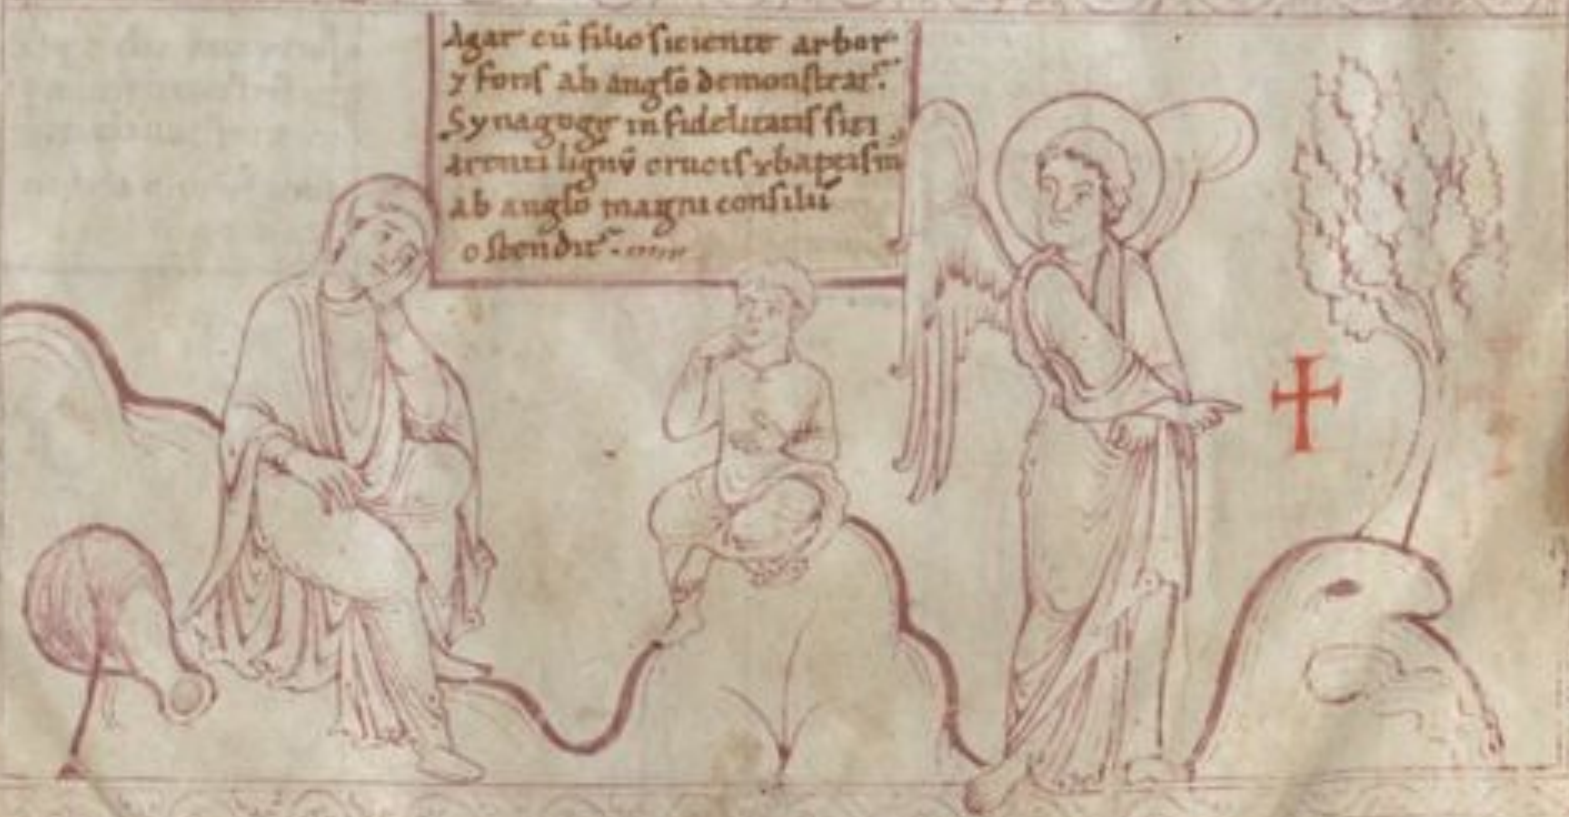 Agar cū filio siciente arbor
⁊ fons ab anglo demonstrat᷑.
Synagoge infidelitatis siti
arenti lignū crucis ⁊ baptism̄
ab anglo magni consilii
ostendit᷑.